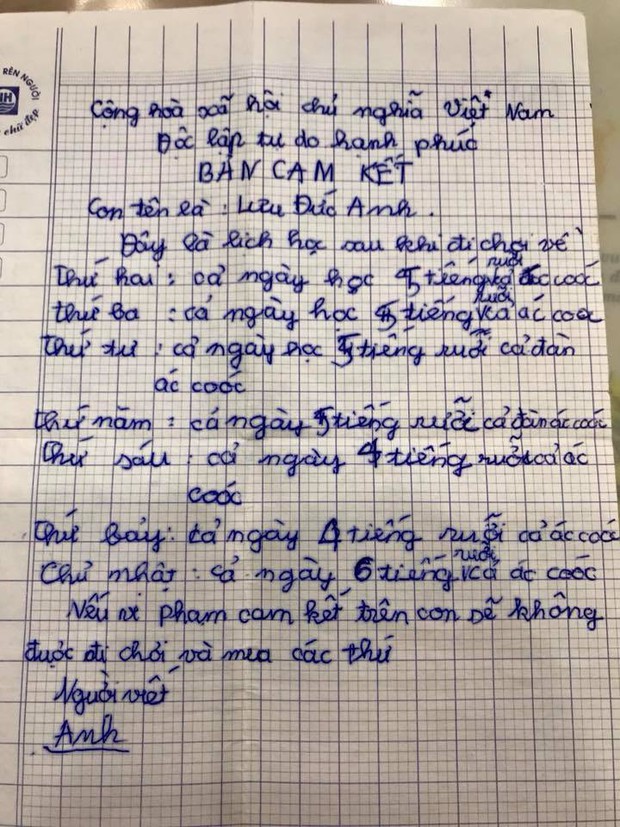 RÈN NGƯỜI
chữ đẹp
Cộng hoà xã hội chủ nghĩa Việt Nam
Độc lập tự do hạnh phúc
BẢN CAM KẾT
Con tên là : Lưu Đức Anh.
Đây là lịch học sau khi đi chơi về
Thứ hai : cả ngày học 5 tiếng rưỡi cả ác coóc
thứ ba : cả ngày học 5 tiếng rưỡi cả ác coóc
Thứ tư : cả ngày học 5 tiếng rưỡi cả đàn
ác coóc
Thứ năm : cả ngày 5 tiếng rưỡi cả đàn ác coóc
Thứ sáu : cả ngày 4 tiếng rưỡi cả ác
coóc
Thứ bảy : cả ngày 4 tiếng rưỡi cả ác coóc
Chủ nhật : cả ngày 6 tiếng rưỡi cả ác coóc
Nếu vi phạm cam kết trên con sẽ không
được đi chơi và mua các thứ
Người viết
Anh